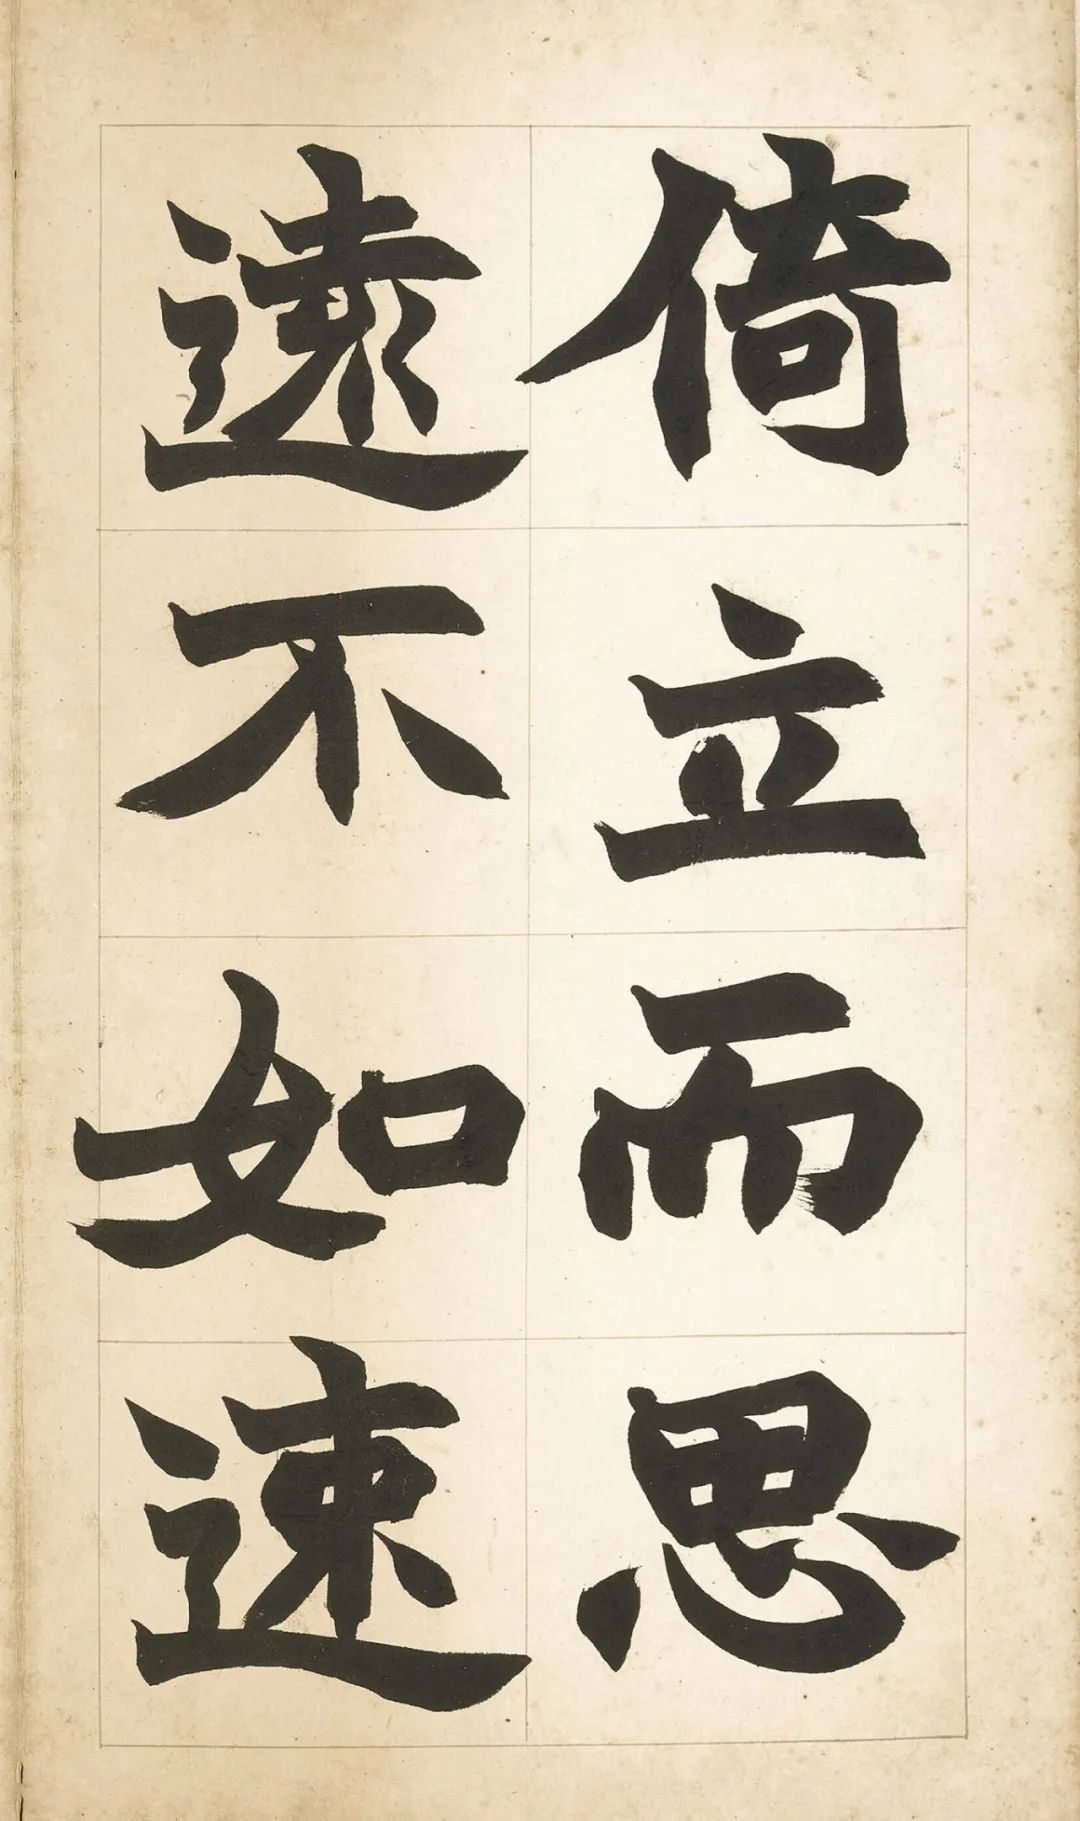 倚立而思
遠不如速